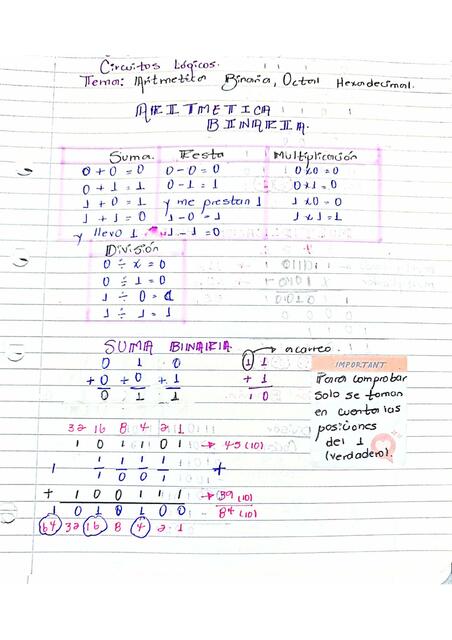 Circuitos Lógicos.
Tema: Aritmetica Binaria, Octal Hexadecimal.
ARITMETICA
BINARIA.
Suma. Resta Multiplicación
0 + 0 = 0 0 - 0 = 0 0 x 0 = 0
0 + 1 = 1 0 - 1 = 1 0 x 1 = 0
1 + 0 = 1 y me prestan 1 1 x 0 = 0
1 + 1 = 0 1 - 0 = 1 1 x 1 = 1
y llevo 1 1 - 1 = 0
División
0 ÷ x = 0
0 ÷ 1 = 0
1 ÷ 0 =
1 ÷ 1 = 1
SUMA BINARIA → acarreo.
0 1 0 1 1
+0 +0 +1 + 1
0 1 1 1 0
IMPORTANT
Para comprobar
solo se toman
en cuenta las
posiciones
del 1
(verdadero).
32 16 8 4 2 1
1 0 1 1 0 1 → 45 (10)
1 1 1 1 1 +
1 0 0 1
+ 1 0 0 1 1 1 → 39 (10)
1 0 1 0 1 0 0 84 (10)
64 32 16 8 4 2 1